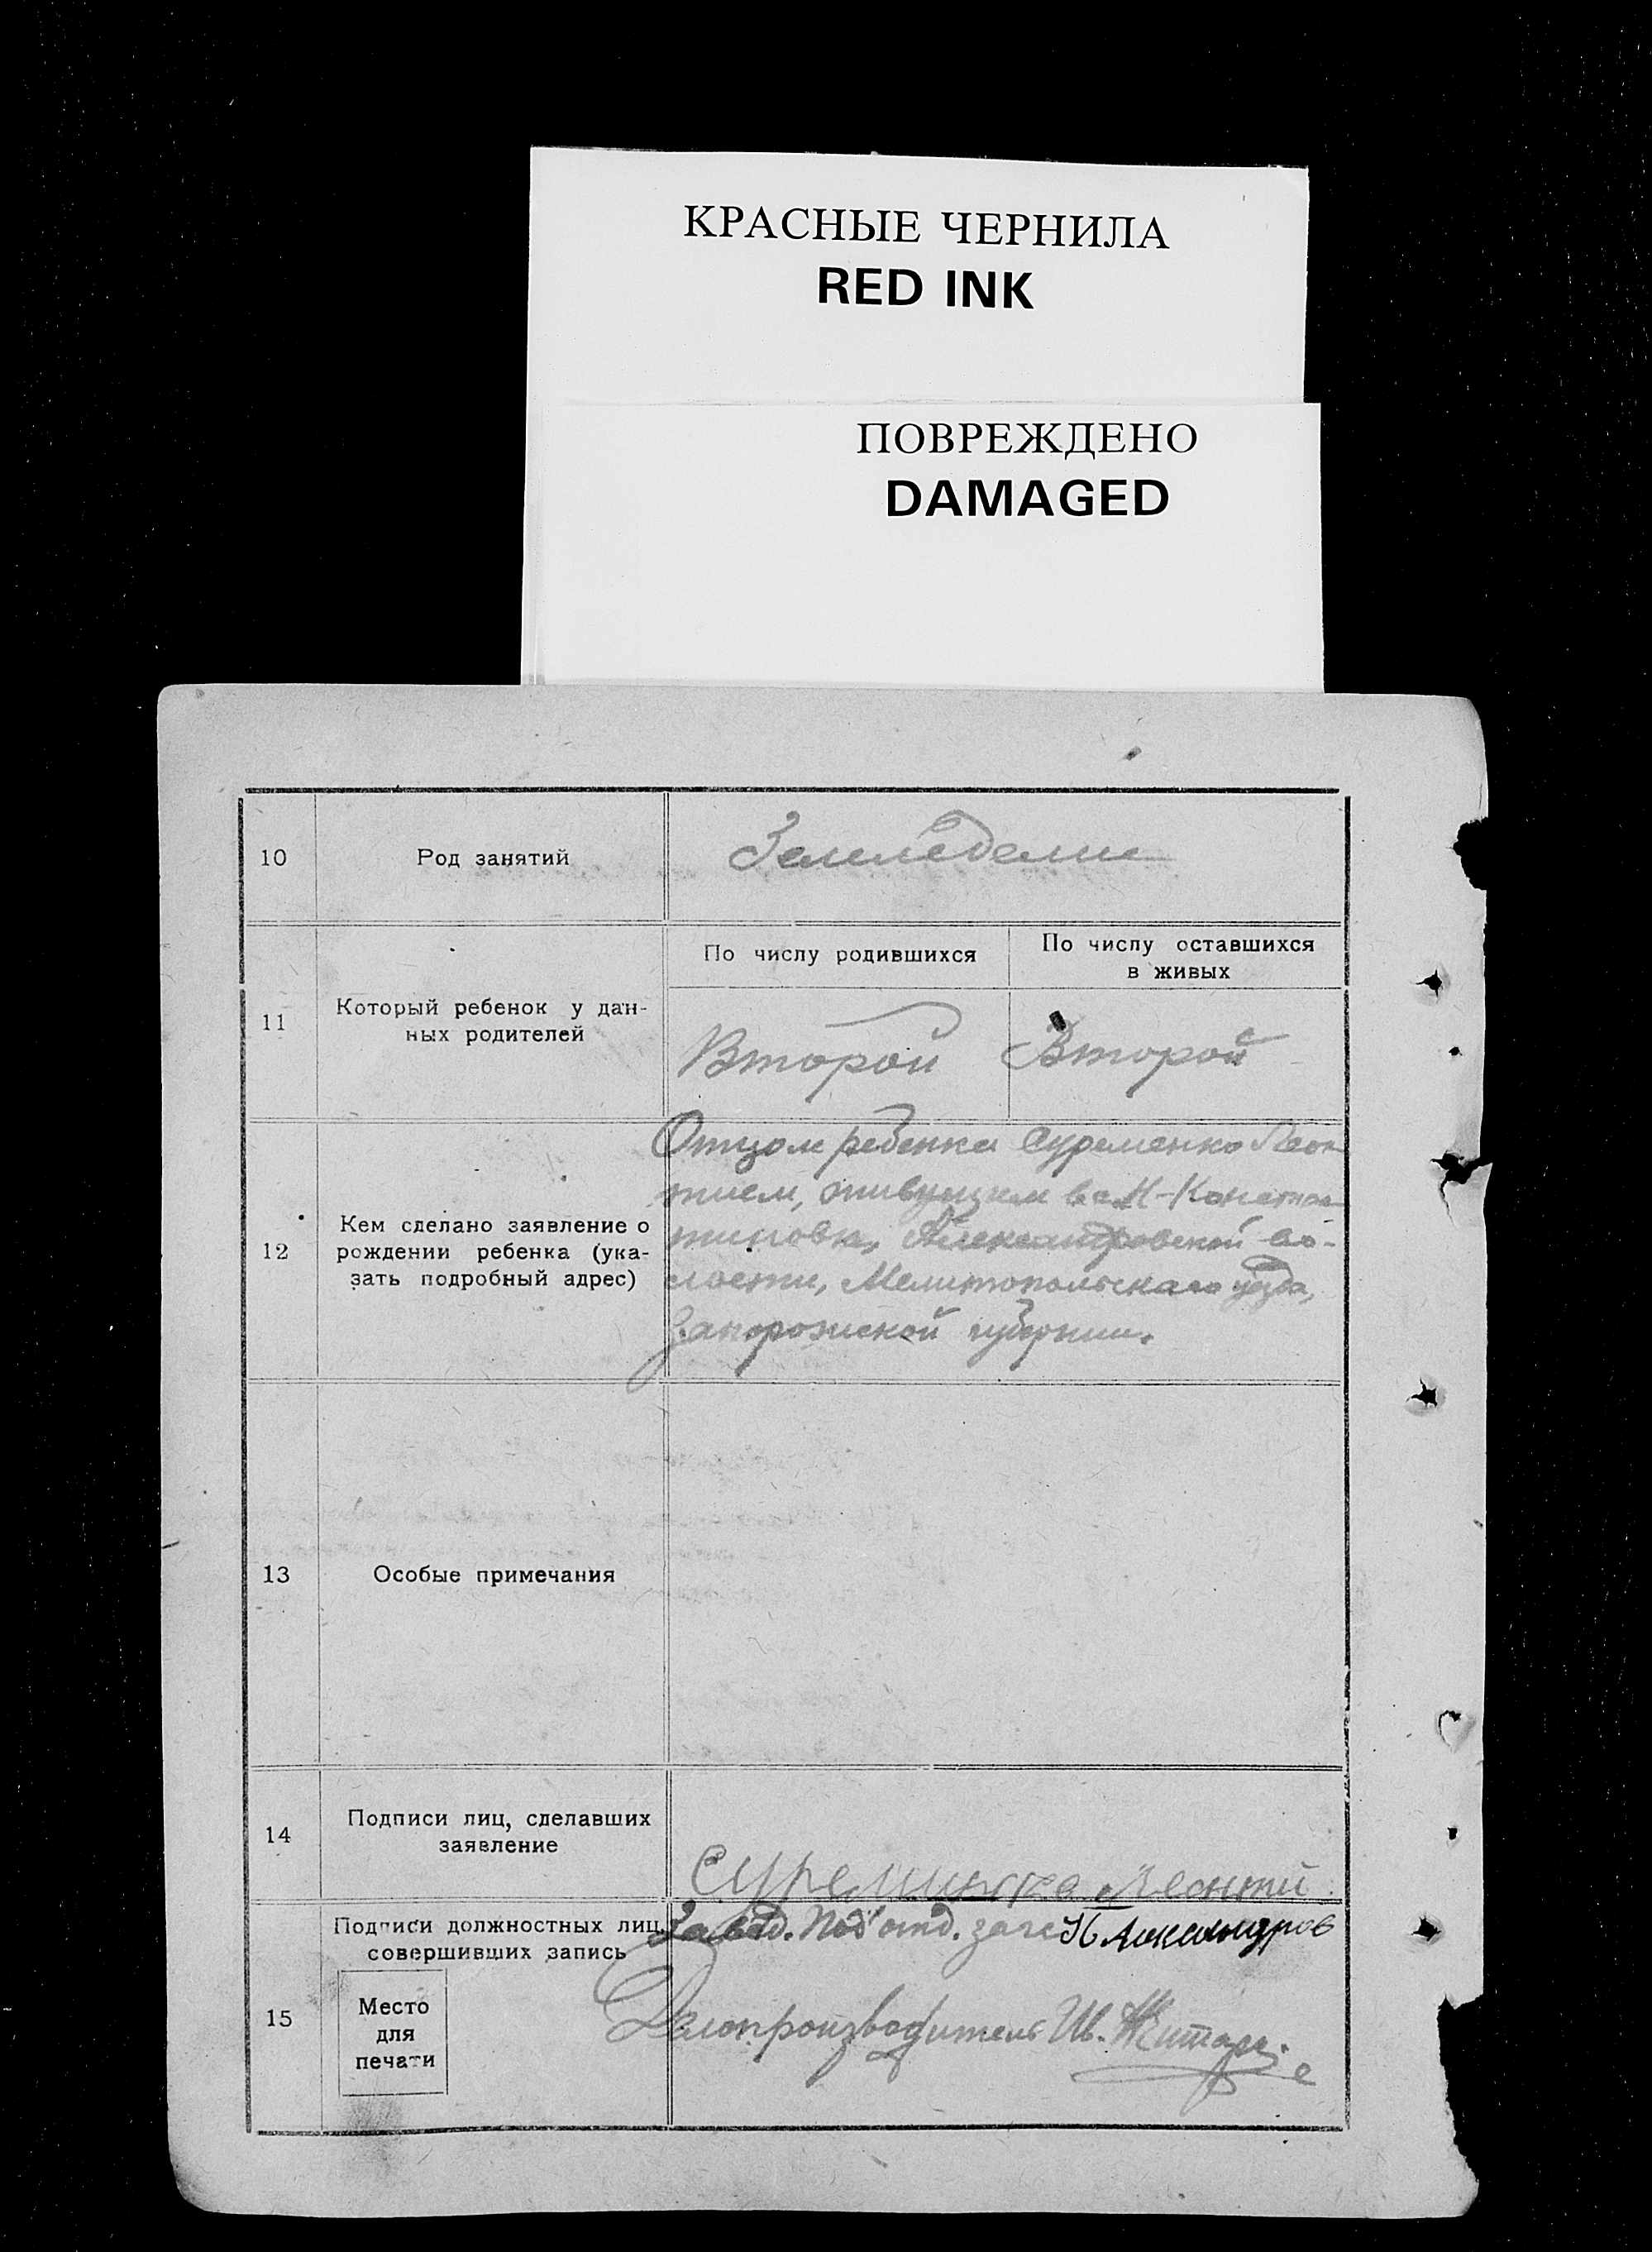 КРАСНЫЕ ЧЕРНИЛА
RED INK
ПОВРЕЖДЕНО
DAMAGED
10
Род занятий
Земледелие
11
Который ребенок у дан-
ных родителей
По числу родившихся
Второй
По числу оставшихся
в живых
Второй
12
Кем сделано заявление о
рождении ребенка (ука-
зать подробный адрес)
Отцом ребенка Суременко Леон
тием, живущем в с. Н-Констан
тиновки, Александровской во-
лости, Мелитопольскаго уезда,
Запорожской губернии.
13
Особые примечания
14
Подписи лиц, сделавших
заявление
Леонтий
15
Подписи должностных лиц,
совершивших запись
Место
для
печати
Завед. Под'отд. загс Александров
Делопроизводитель Ив.